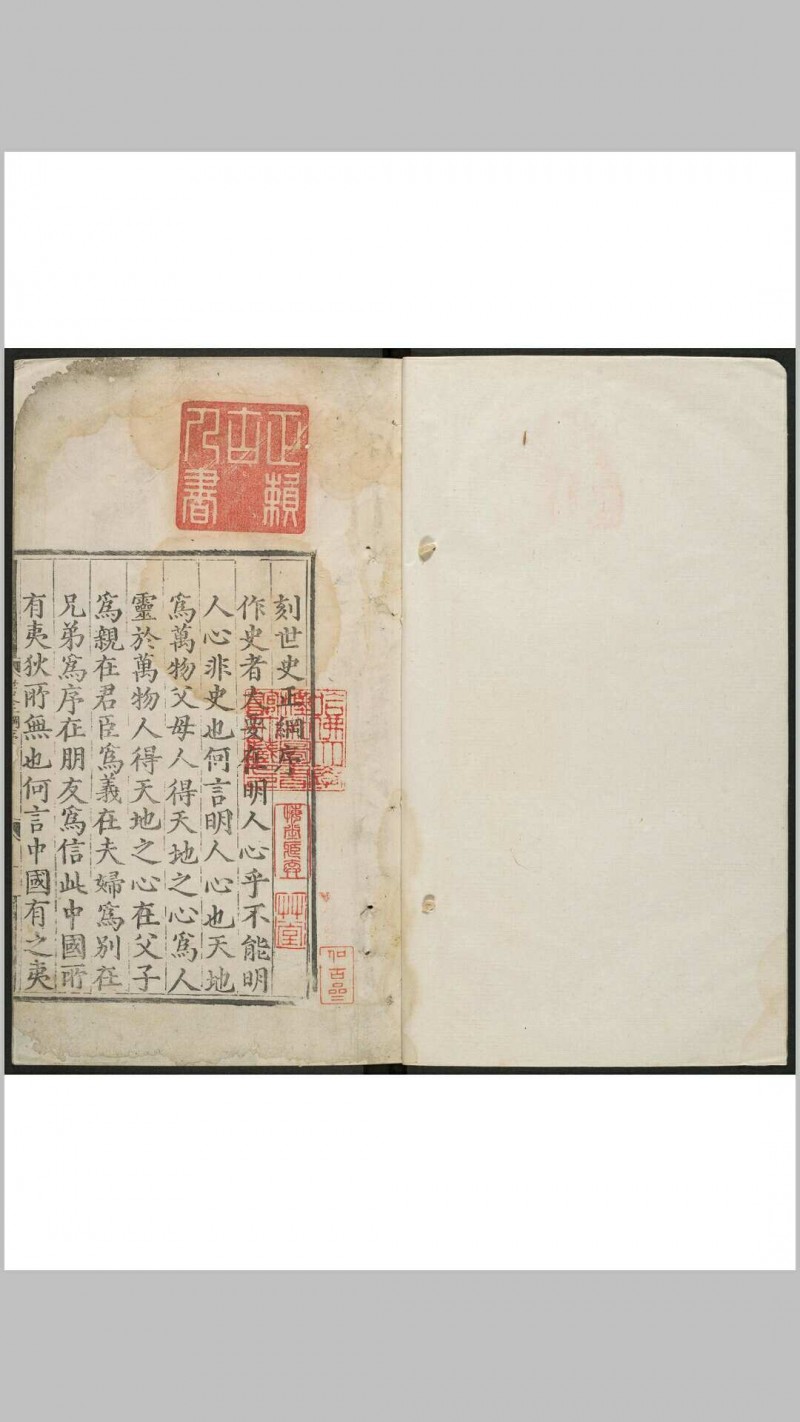 刻世史正綱序
作史者大要在明人心乎不能明
人心非史也何言明人心也天地
爲萬物父母人得天地之心爲人
靈於萬物人得天地之心在父子
爲親在君臣爲義在夫婦爲别在
兄弟爲序在朋友爲信此中國所
有夷狄所無也何言中國有之夷
正賴
古
人書
艸堂